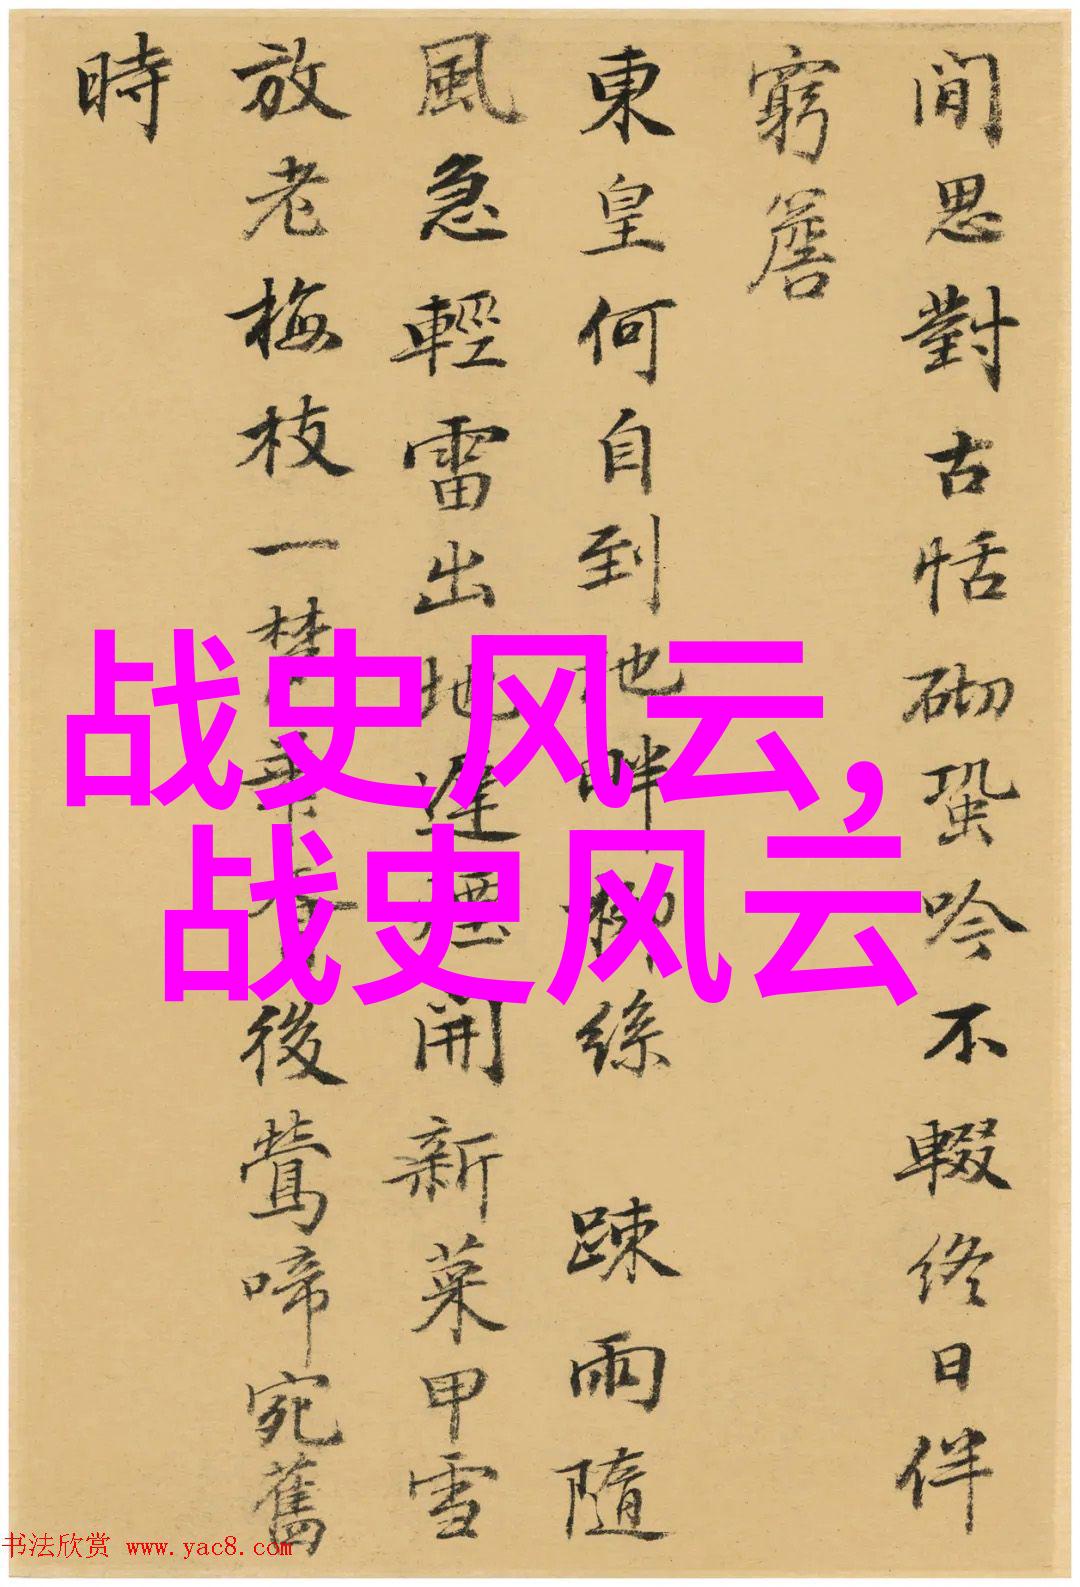 間思對古恬砌蛩吟不輟終日伴
窮簷
東皇何自到池畔柳絲 踈雨隨
風急輕雷出地遲壥開新菜甲雪
放老梅枝一梦華胥後鶯啼宛舊
時
战史风云，
战史风云
书法欣赏 www.yac8.com